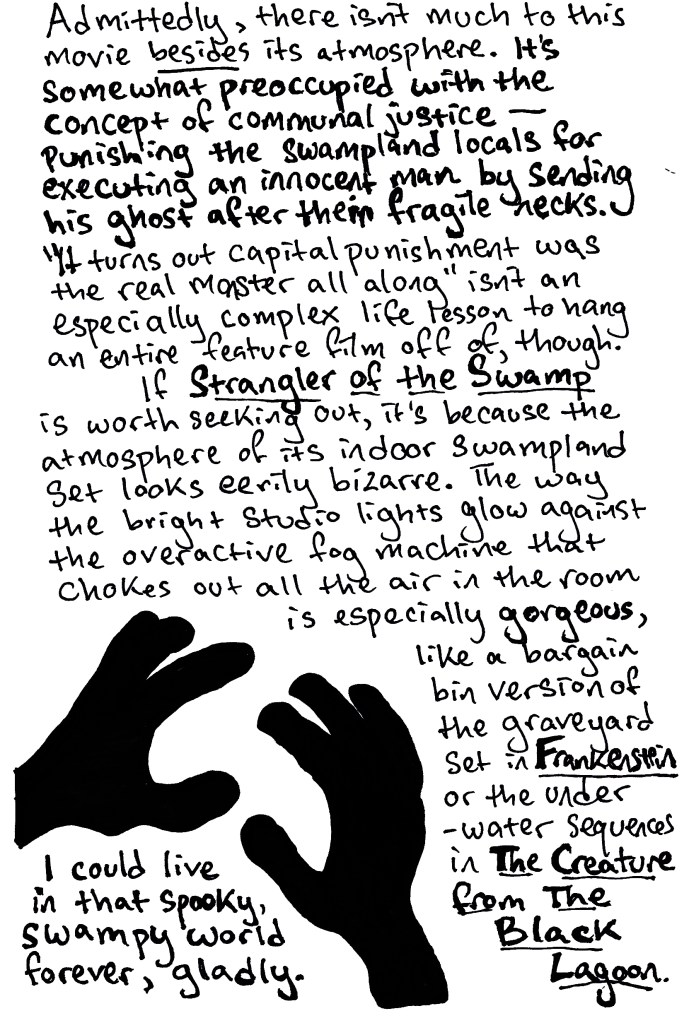 Admittedly, there isn't much to this
movie besides its atmosphere. It's
somewhat preoccupied with the
concept of communal justice —
punishing the swampland locals for
executing an innocent man by sending
his ghost after their fragile necks.
"It turns out capital punishment was
the real monster all along" isn't an
especially complex life lesson to hang
an entire feature film off of, though.
If Strangler of the Swamp
is worth seeking out, it's because the
atmosphere of its indoor swampland
set looks eerily bizarre. The way
the bright studio lights glow against
the overactive fog machine that
chokes out all the air in the room
is especially gorgeous,
like a bargain
bin version of
the graveyard
set in Frankenstein
or the under
-water sequences
in The Creature
from The
Black
Lagoon.
I could live
in that spooky,
swampy world
forever, gladly.